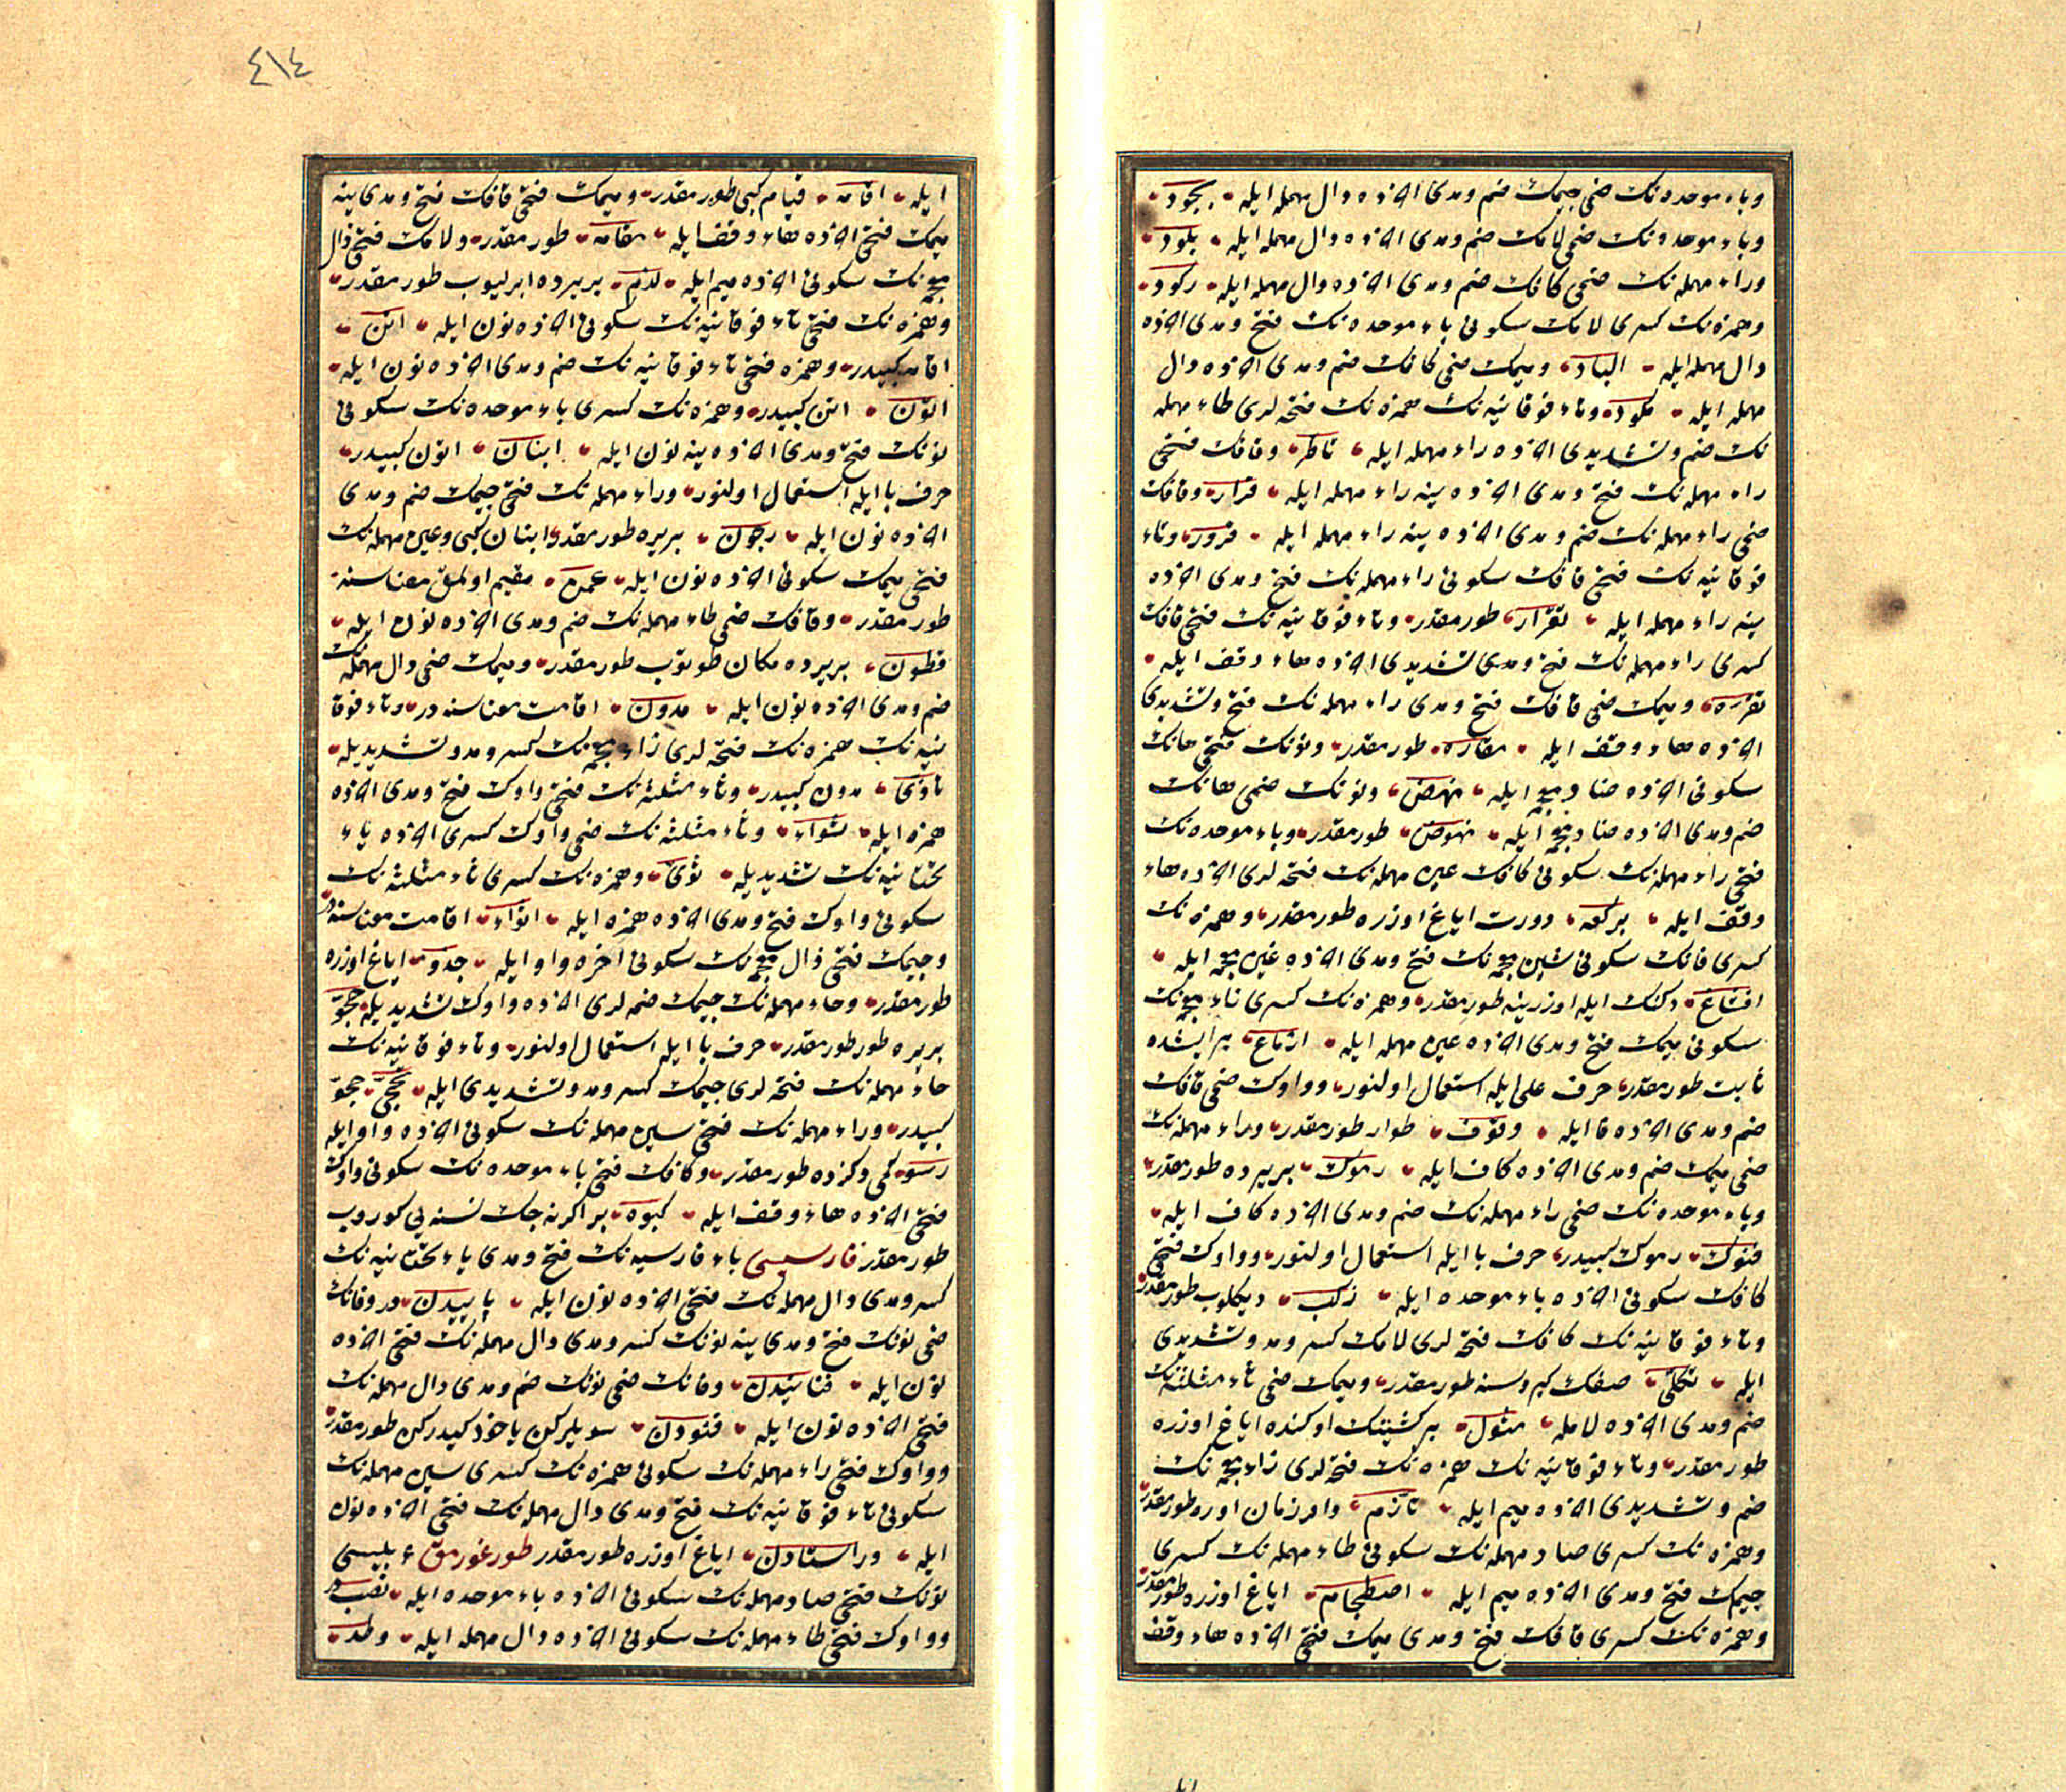 وباء موحده نك ضمی جیمك ضم ومدی اخرده دال مهمله ایله بجود
وباء موحده نك ضمی لامك ضم ومدی اخرده دال مهمله ایله بلود
وراء مهمله نك ضمی كافك ضم ومدی اخرده دال مهمله ایله ركود
وهمزه نك كسری لامك سكونی باء موحده نك فتح ومدی اخرده
دال مهمله ایله الباد ومیمك ضمی كافك ضم ومدی اخرده دال
مهمله ایله مكود وتاء فوقانیه نك همزه نك فتحه لری طاء مهمله
نك ضم وتشدیدی اخرده راء مهمله ایله تاطر وقافك فتحی
راء مهمله نك فتح ومدی اخرده ینه راء مهمله ایله قرار وقافك
ضمی راء مهمله نك ضم ومدی اخرده ینه راء مهمله ایله قرور وتاء
فوقانیه نك فتحی قافك سكونی راء مهمله نك فتح ومدی اخرده
ینه راء مهمله ایله تقرار طورمقدر وتاء فوقانیه نك فتحی قافك
كسری راء مهمله نك فتح ومدی تشدیدی اخرده هاء وقف ایله
تقره ومیمك ضمی قافك فتح ومدی راء مهمله نك فتح وتشدیدی
اخرده هاء وقف ایله مقاره طورمقدر ونونك فتحی هانك
سكونی اخرده ضاد معجمه ایله نهض ونونك ضمی هانك
ضم ومدی اخرده ضاد معجمه ایله نهوض طورمقدر وباء موحده نك
فتحی راء مهمله نك سكونی كافك عین مهمله نك فتحه لری اخرده هاء
وقف ایله بركعه دورت ایاغ اوزره طورمقدر وهمزه نك
كسری فانك سكونی شین معجمه نك فتح ومدی اخرده غین معجمه ایله
افشاغ دكنك ایله اوزرینه طورمقدر وهمزه نك كسری زاء معجمه نك
سكونی میمك فتح ومدی اخرده عین مهمله ایله ازماع بر ایشده
ثابت طورمقدر حرف علی ایله استعمال اولنور وواوك ضمی قافك
ضم ومدی اخرده فا ایله وقوف طوار طورمقدر وراء مهمله نك
ضمی میمك ضم ومدی اخرده كاف ایله رموك بریرده طورمقدر
وباء موحده نك ضمی راء مهمله نك ضم ومدی اخرده كاف ایله
فنوك رموك كبیدر حرف با ایله استعمال اولنور وواوك فتحی
كافك سكونی اخرده باء موحده ایله زكب دیكلوب طورمقدر
وتاء فوقانیه نك كافك فتحه لری لامك كسر ومد وتشدیدی
ایله تكلی صفك كیروسنه طورمقدر ومیمك ضمی ثاء مثلثه نك
ضم ومدی اخرده لامله مثول بر كشینك اوكنده ایاغ اوزره
طورمقدر وتاء فوقانیه نك همزه نك فتحه لری زاء معجمه نك
ضم وتشدیدی اخرده میم ایله تازم وافر زمان اوره طورمقدر
وهمزه نك كسری صاد مهمله نك سكونی طاء مهمله نك كسری
جیمك فتح ومدی اخرده میم ایله اصطجام ایاغ اوزره طورمقدر
وهمزه نك كسری قافك فتح ومدی میمك فتحی اخرده هاء وقف
ایله
٤١٤
ایله اقامه قیام كبی طورمقدر ومیمك فتحی قافك فتح ومدی ینه
میمك فتحی اخرده هاء وقف ایله مقامه طورمقدر ولامك فتحی ذال
معجمه نك سكونی اخرده میم ایله لذم بریرده ابرلیوب طورمقدر
وهمزه نك فتحی تاء فوقانیه نك سكونی اخرده نون ایله اتن
اقامه كبیدر وهمزه فتحی تاء فوقانیه نك ضم ومدی اخرده نون ایله
اتون اتن كبیدر وهمزه نك كسری باء موحده نك سكونی
نونك فتح ومدی اخرده ینه نون ایله ابنان اتون كبیدر
حرف با ایله استعمال اولنور وراء مهمله نك فتحی جیمك ضم ومدی
اخرده نون ایله رجون بریره طورمقدر ابنان كبی وعین مهمله نك
فتحی میمك سكونی اخرده نون ایله عمن مقیم اولمق معناسنه
طورمقدر وقافك ضمی طاء مهمله نك ضم ومدی اخرده نون ایله
قطون بریرده مكان طوتوب طورمقدر ومیمك ضمی دال مهمله نك
ضم ومدی اخرده نون ایله مدون اقامت معناسنه در وتاء فوقا
نیه نك همزه نك فتحه لری زاء معجمه نك كسر ومد وتشدیدیله
تازی مدون كبیدر وثاء مثلثه نك فتحی واوك فتح ومدی اخرده
همزه ایله ثواء وثاء مثلثه نك ضمی واوك كسری اخرده یاء
تحتانیه نك تشدیدیله ثوی وهمزه نك كسری ثاء مثلثه نك
سكونی واوك فتح ومدی اخرده همزه ایله اثواء اقامت معناسنه در
وجیمك فتحی ذال معجمه نك سكونی اخره واو ایله جذو ایاغ اوزره
طورمقدر وحاء مهمله نك جیمك ضمه لری اخرده واوك تشدیدیله حجو
بریره طور طورمقدر حرف با ایله استعمال اولنور وتاء فوقانیه نك
حاء مهمله نك فتحه لری جیمك كسر ومد وتشدیدی ایله تحجی حجو
كبیدر وراء مهمله نك فتحی سین مهمله نك سكونی اخرده واو ایله
رسو كمی وكزده طورمقدر وكافك فتحی باء موحده نك سكونی واوك
فتحی اخرده هاء وقف ایله كبوه براكرنه جك نسنه یی كوروب
طورمقدر فارسیسی باء فارسیه نك فتح ومدی یاء تحتانیه نك
كسر ومدی دال مهمله نك فتحی اخرده نون ایله پاییدن در وفانك
ضمی نونك فتح ومدی ینه نونك كسر ومدی دال مهمله نك فتحی اخرده
نون ایله فنانیدن وفانك ضمی نونك ضم ومدی دال مهمله نك
فتحی اخرده نون ایله فنودن سویلركن یاخود كیدركن طورمقدر
وواوك فتحی راء مهمله نك سكونی همزه نك كسری سین مهمله نك
سكونی تاء فوقانیه نك فتح ومدی دال مهمله نك فتحی اخرده نون
ایله وراستادن ایاغ اوزره طورمقدر طورغورمق عربیسی
نونك فتحی صاد مهمله نك سكونی اخرده باء موحده ایله نصب در
وواوك فتحی طاء مهمله نك سكونی اخرده دال مهمله ایله وطد